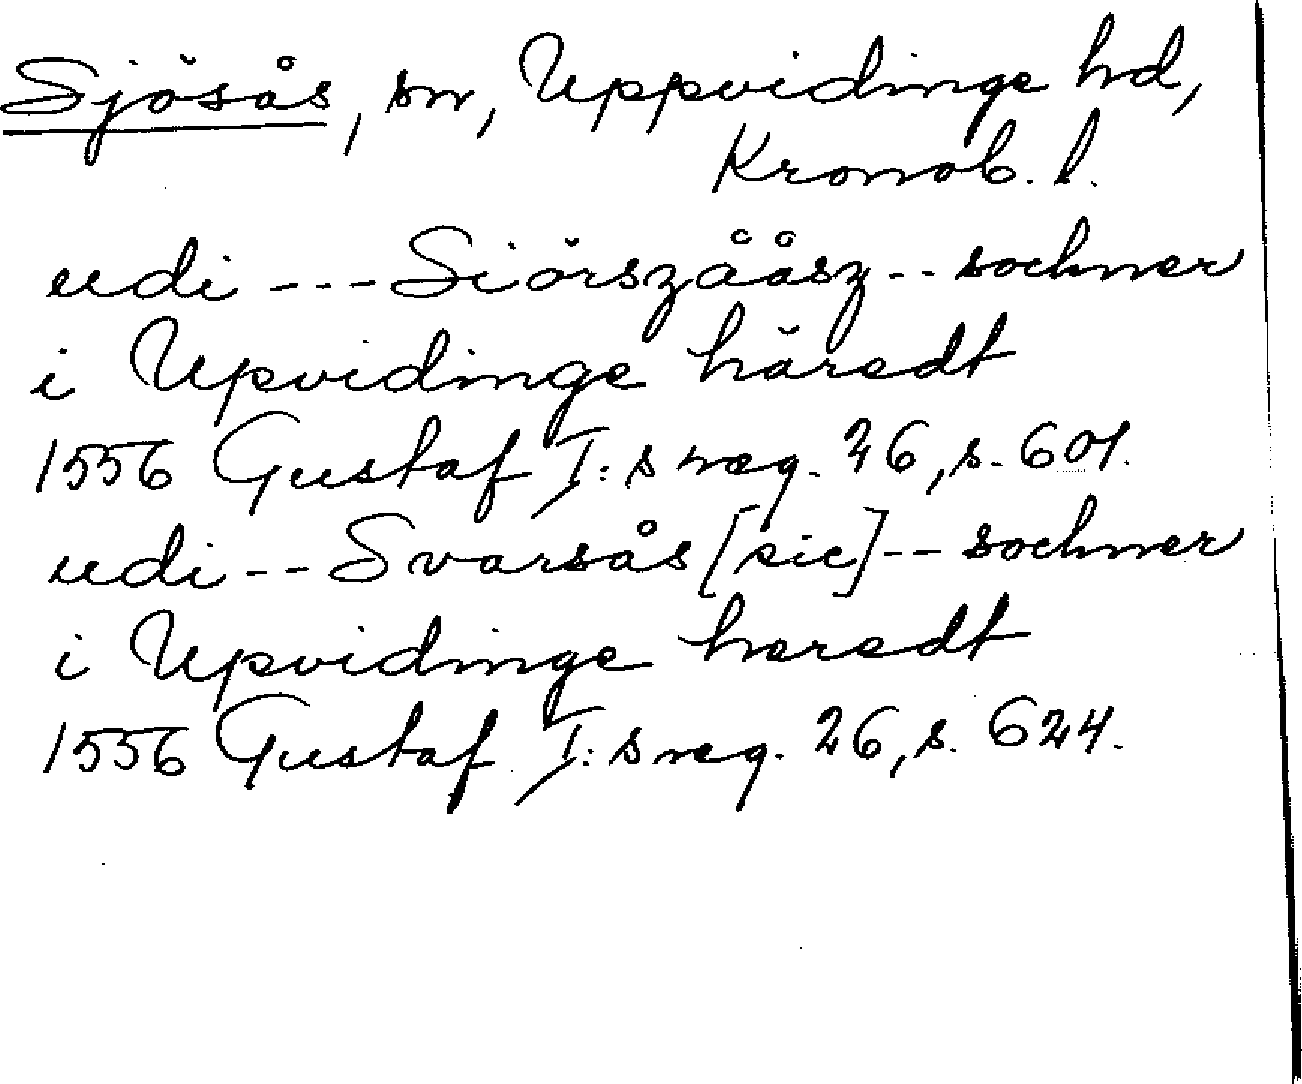 Sjösås, sn, Uppvidinge hd,
Kronob. l.
udi --- Siörszååsz -- sochner
i Upvidinge häredt
1556 Gustaf I:s reg. 26, s. 601.
udi -- Svarsås [sic] -- sochner
i Upvidinge heredt
1556 Gustaf I:s reg. 26, s. 624.